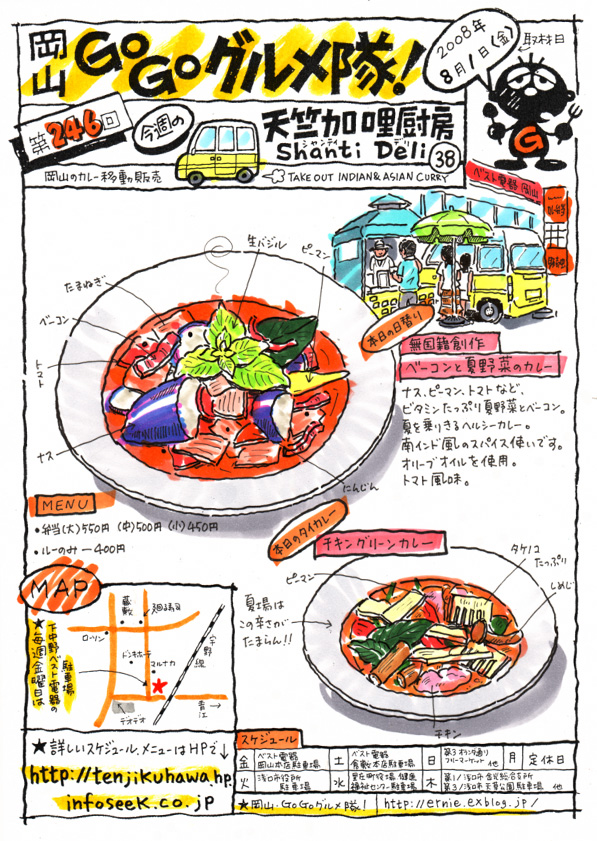 岡山 GoGoグルメ隊!
2008年
8月1日(金)
取材日
G
第246回
今週の
天竺加哩厨房
シャンティ デリ
Shanti Deli
38
岡山のカレー移動販売
TAKE OUT INDIAN & ASIAN CURRY
ベスト電器 岡山
生バジル
ピーマン
たまねぎ
ベーコン
トマト
ナス
にんじん
本日の日替り
無国籍創作
ベーコンと夏野菜のカレー
ナス、ピーマン、トマトなど、
ビタミンたっぷり夏野菜とベーコン。
夏を乗りきるヘルシーカレー。
南インド風のスパイス使いです。
オリーブオイルを使用。
トマト風味。
MENU
・弁当(大)550円 (中)500円 (小)450円
・ルーのみ ー 400円
本日のタイカレー
チキングリーンカレー
ピーマン
タケノコ
たっぷり
しめじ
チキン
夏場は
この辛さが
たまらん!!
MAP
★下中野ベスト電器の
駐車場
毎週金曜日は
ローソン
ドンキホーテ
マルナカ
宇野線
デオデオ
青江
★詳しいスケジュール、メニューはHPで↓
http://tenjikuhawa.hp.
infoseek.co.jp
スケジュール
金 ベスト電器 岡山本店駐車場 土 ベスト電器 倉敷本店駐車場 日 フリーマーケット 他 月 定休日
火 浅口市役所 駐車場 水 里庄町役場、健康福祉センター駐車場 木 駐車場 他
★岡山・GoGoグルメ隊! http://ernie.exblog.jp/